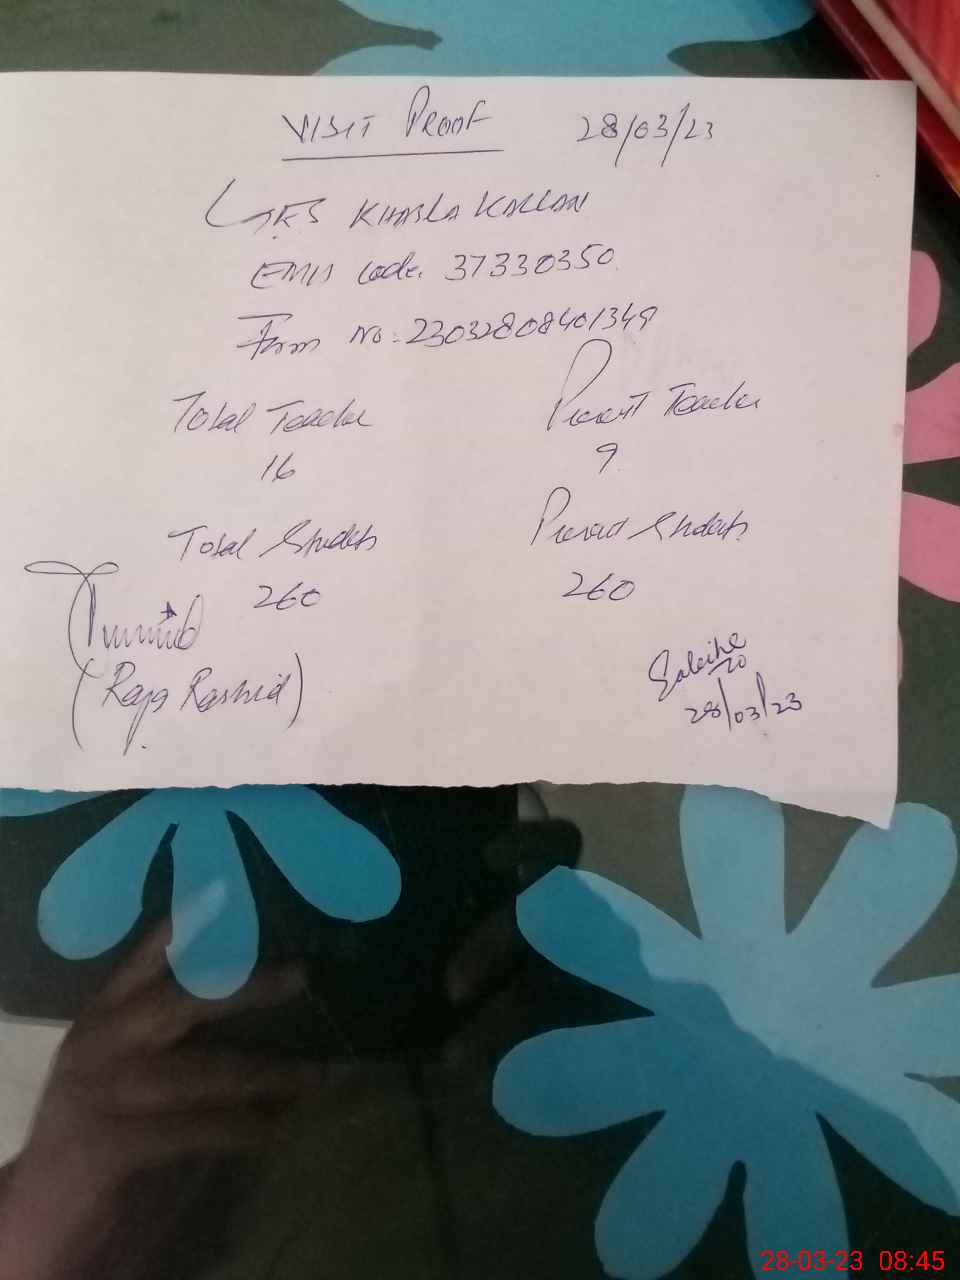 VISIT PROOF 28/03/23
GES KHABLA KALLAN
EMIS Code. 37330350
Form No: 23032808401349
Total Teacher Present Teacher
16 9
Total Students Present Students
260 260
(Raja Rashid)
28/03/23
28-03-23 08:45